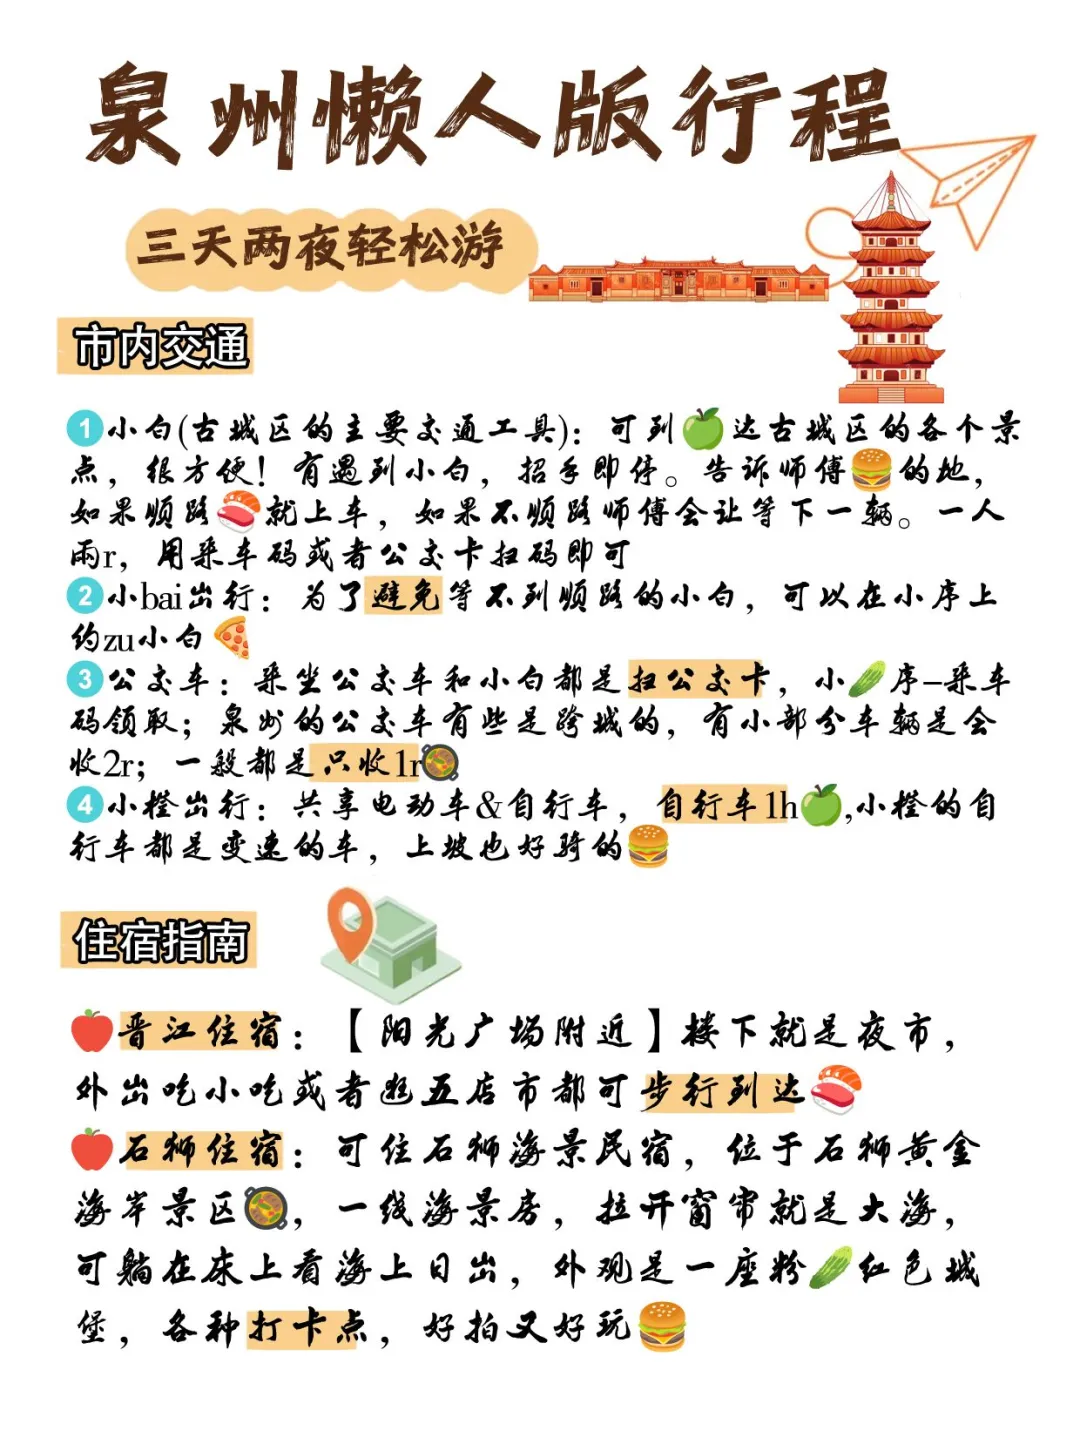 泉州懒人版行程
三天两夜轻松游
市内交通
1 小白(古城区的主要交通工具)：可到🍏达古城区的各个景
点，很方便！有遇到小白，招手即停。告诉师傅🍔的地，
如果顺路🍣就上车，如果不顺路师傅会让等下一辆。一人
兩r，用乘车码或者公交卡扫码即可
2 小bai出行：为了避免等不到顺路的小白，可以在小序上
约zu小白🍕
3 公交车：乘坐公交车和小白都是扫公交卡，小🥒序-乘车
码领取；泉州的公交车有些是跨城的，有小部分车辆是会
收2r；一般都是只收1r🥘
4 小橙出行：共享电动车&自行车，自行车1h🍏,小橙的自
行车都是变速的车，上坡也好骑的🍔
住宿指南
🍎晋江住宿：【阳光广场附近】楼下就是夜市，
外出吃小吃或者逛五店市都可步行到达🍣
🍎石狮住宿：可住石狮海景民宿，位于石狮黄金
海岸景区🥘，一线海景房，拉开窗帘就是大海，
可躺在床上看海上日出，外观是一座粉🥒红色城
堡，各种打卡点，好拍又好玩🍔